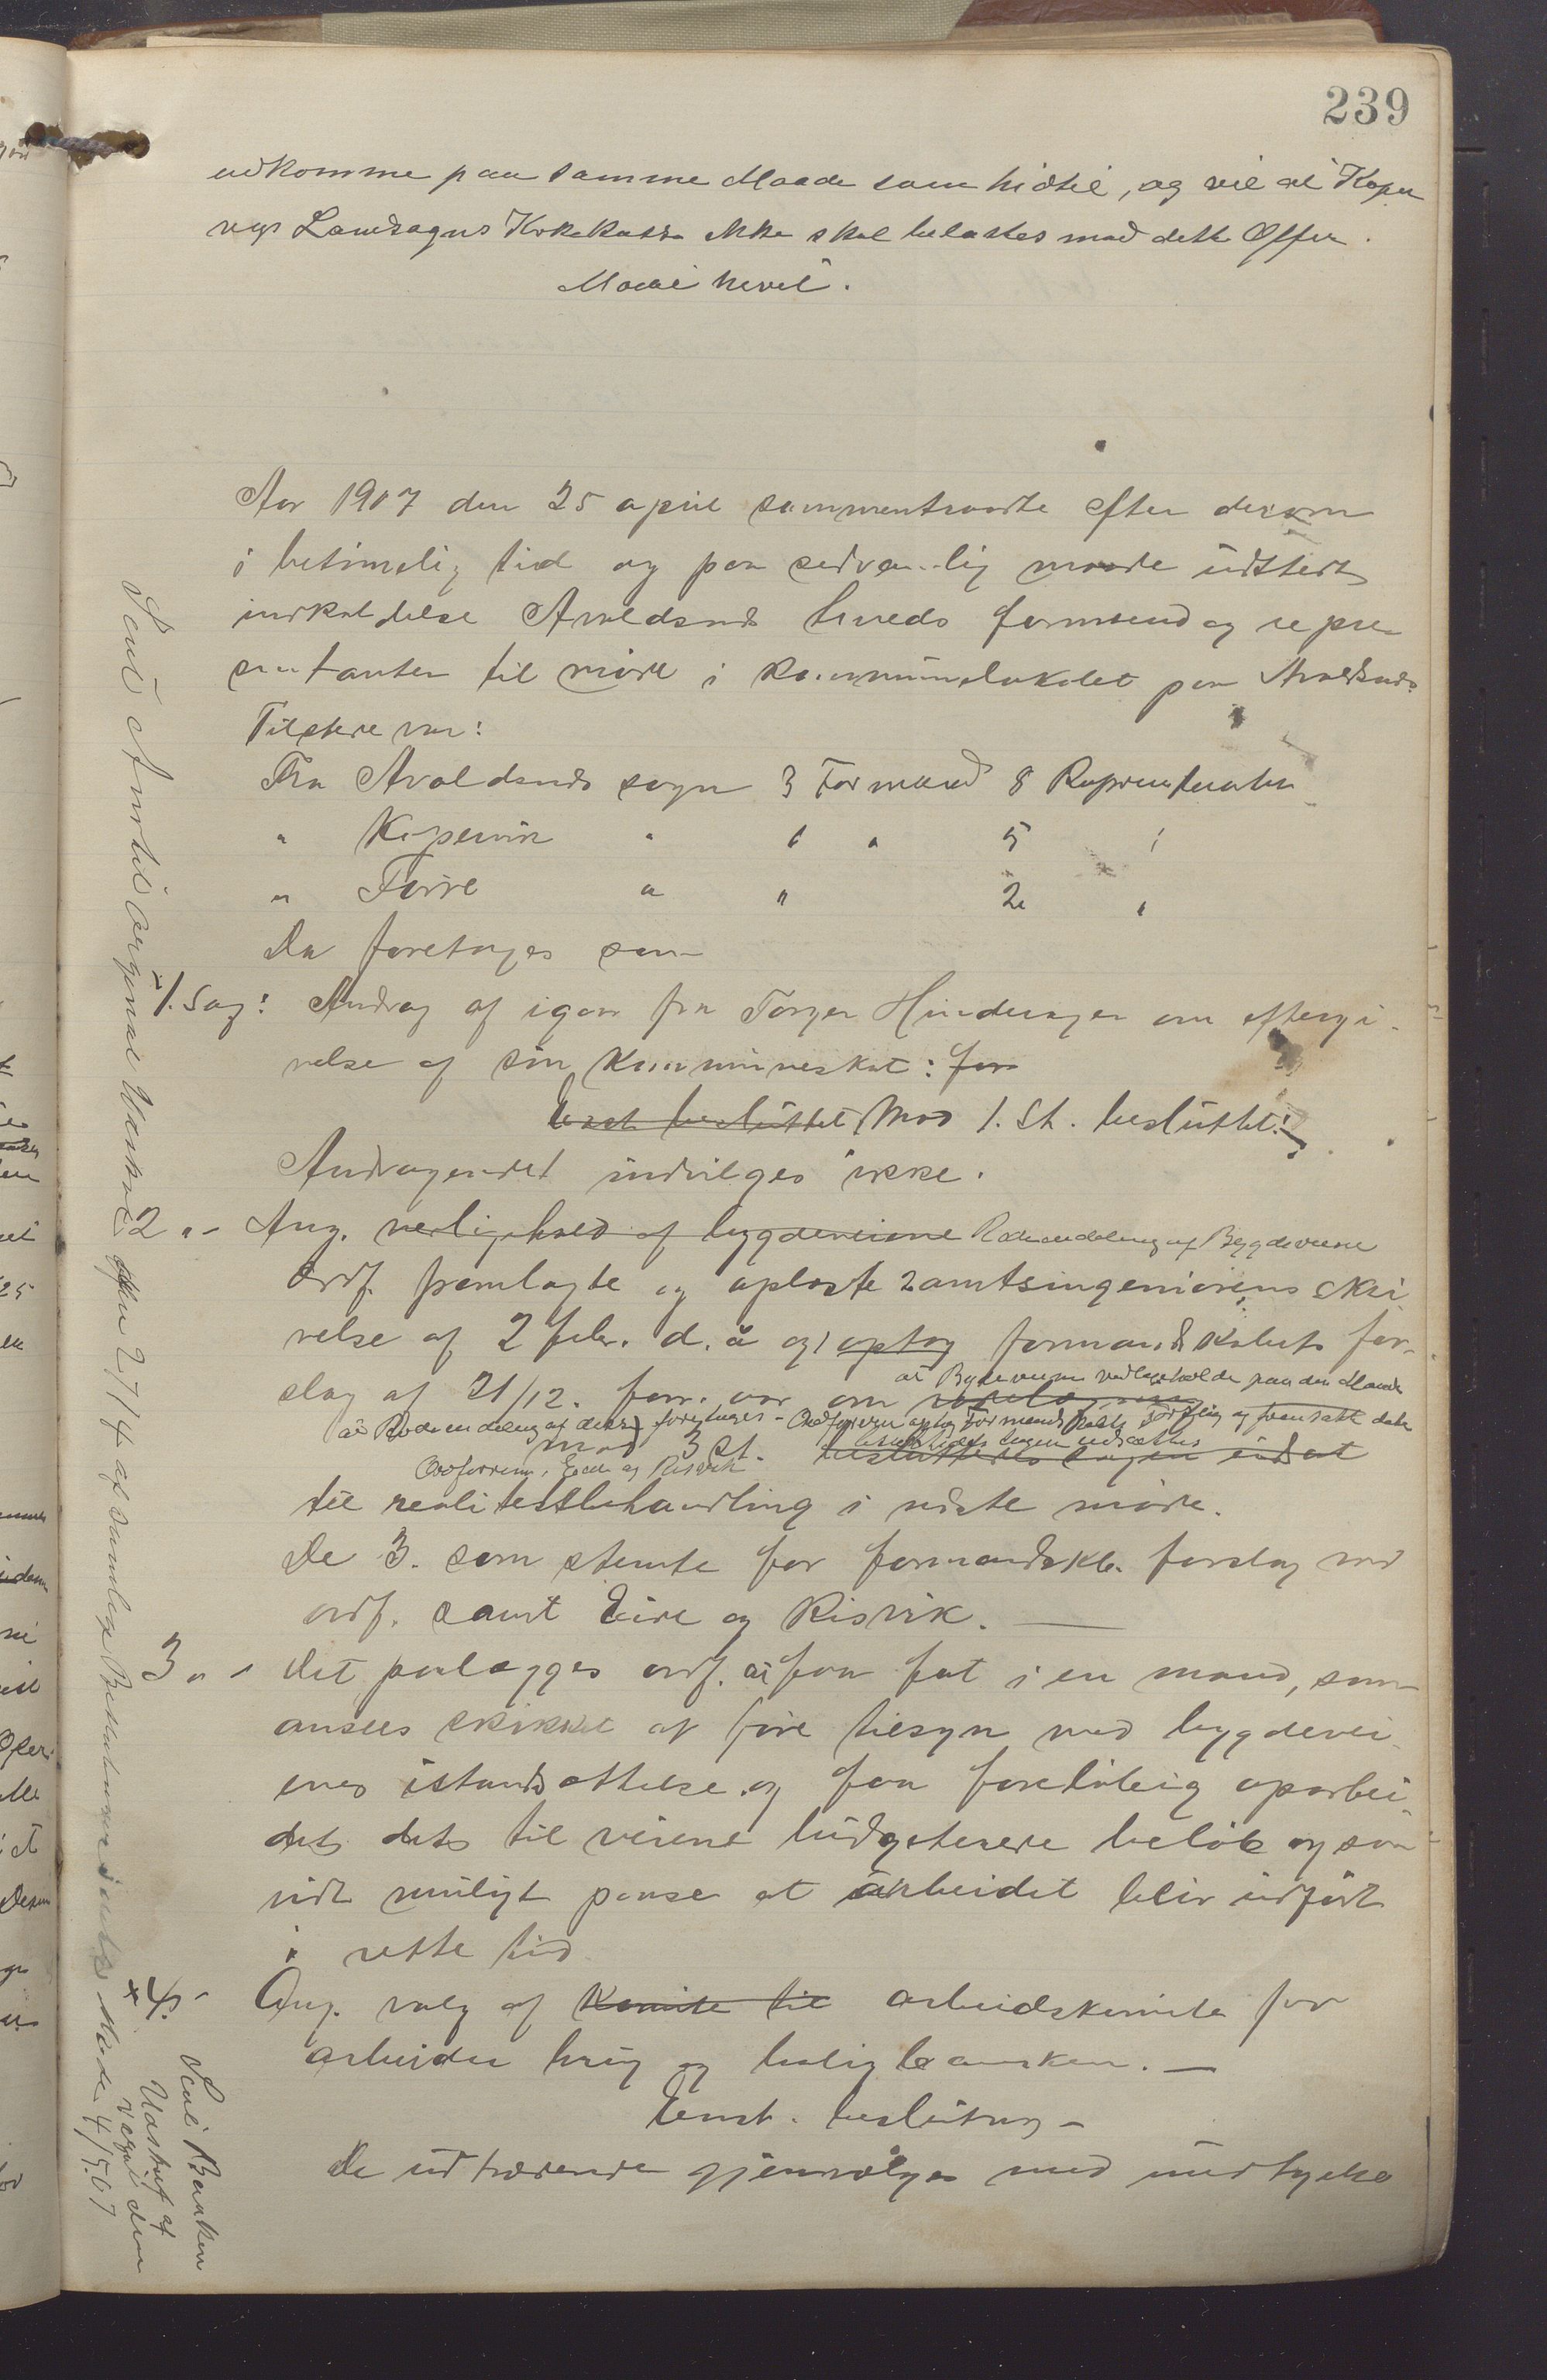 239
udkomme paa samme Maade som hidtil, og vil at Koper
vigs Landsogns Kirkekasse ikke skal belastes med dette Offer.
Mødet hevet.
Aar 1907 den 25 april sammentraadte efter derom
i betimelig tid og paa sedvanlig maade udstedt
indkaldelse Avaldsnes herreds formænd og repræ
sentanter til møde i kommunelokalet paa Avaldsnes
Tilstede var:
Fra Avaldsnes sogn 3 Formænd 8 Repræsentanter
" Kopervik " 1 " 5 "
" Førre " " " 2 "
Da foretoges som
1. Sag: Andrag af igaar fra Torger Hinderager om eftergi-
velse af sin kommuneskat: for
Enst. besluttet Mod 1. St. besluttet:
Andragendet indvilges ikke.
2 " - Ang. vedligehold af bygdeveiene Rodeinndeling af Bygdeveiene
Ordf. fremlagte og oplæste amtsingeniørens skri
velse af 2 febr. d. å og optog formandskabets for-
at Bygdeveiene vedligeholdes paa den Maade
slag af 21/12. forr. aar om
at Rodeinndeling af dem foretages - Ordføreren optog Formandskabets Forslag og fremsatte dette
mod 3 St. besluttedes Sagen udsættes
besluttedes sagen udsat
Ordføreren, Eide og Risvik
til realitetsbehandling i næste møde.
De 3. som stemte for formandskb. forslag var
ordf. samt Eide og Risvik.
3 " - Det paalægges ordf. at faa fat i en mand, som
ansees skikket at føre tilsyn med bygdevei-
enes istandsættelse og faa foreløbig oparbei-
det det til veiene budgeterede beløb og saa
vidt muligt passe at arbeidet blir udført
i rette tid
+ 4. - Ang. valg af Komite til arbeidskomite for
arbeider brug og boligbanken. -
Enst. beslutning -
De udtrædende gjenvælges med undtagelse
Sendt Amtet original Udskrift den 27/4 af samtlige Beslutninger i dette Møde 4/5 07
Sendt Banken
Udskrift af
valget den